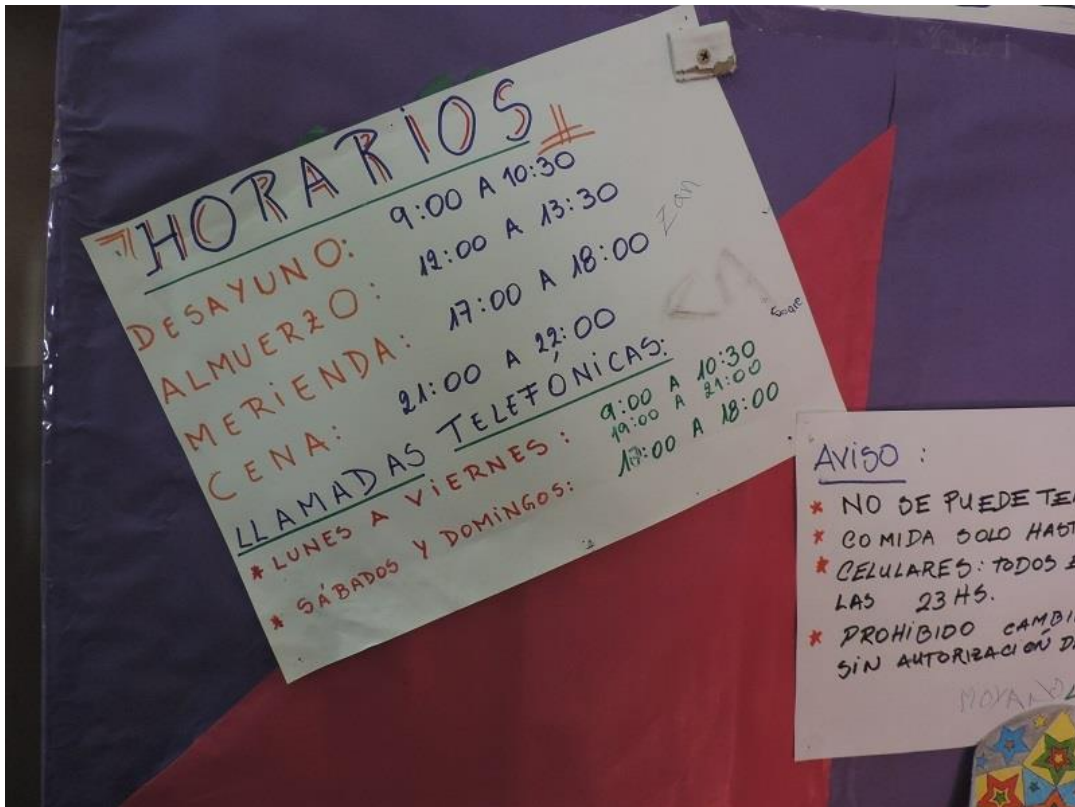 HORARIOS
DESAYUNO: 9:00 A 10:30
ALMUERZO: 12:00 A 13:30
MERIENDA: 17:00 A 18:00
CENA: 21:00 A 22:00
LLAMADAS TELEFÓNICAS:
* LUNES A VIERNES: 9:00 A 10:30
19:00 A 21:00
* SÁBADOS Y DOMINGOS: 17:00 A 18:00
Zan
AVISO:
* NO SE PUEDE TE
* COMIDA SOLO HAST
* CELULARES: TODOS
LAS 23 HS.
* PROHIBIDO CAMBI
SIN AUTORIZACIÓN D